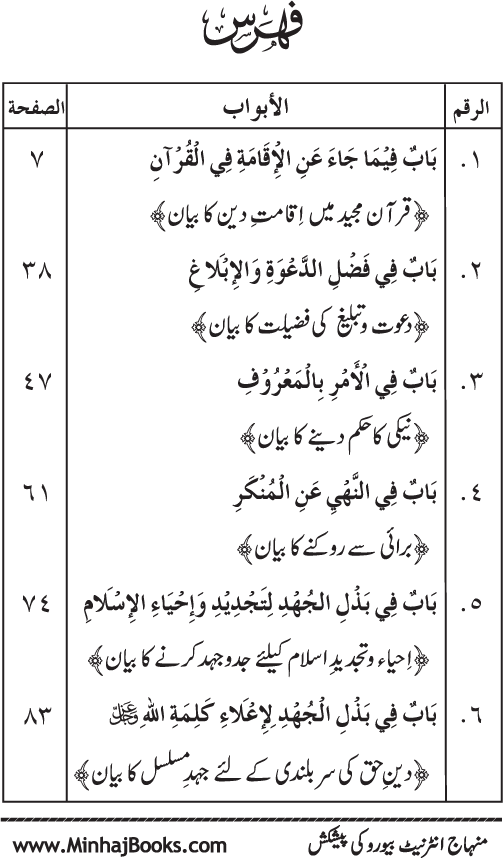 فہرس
الرقم الأبواب الصفحة
١. بَابٌ فِيْمَا جَاءَ عَنِ الْإِقَامَةِ فِي الْقُرْآنِ ٧
﴿قرآن مجید میں اِقامتِ دین کا بیان﴾
٢. بَابٌ فِي فَضْلِ الدَّعْوَةِ وَالإِبْلَاغِ ٣٨
﴿دعوت و تبلیغ کی فضیلت کا بیان﴾
٣. بَابٌ فِي الْأَمْرِ بِالْمَعْرُوْفِ ٤٧
﴿نیکی کا حکم دینے کا بیان﴾
٤. بَابٌ فِي النَّهْيِ عَنِ الْمُنْكَرِ ٦١
﴿برائی سے روکنے کا بیان﴾
٥. بَابٌ فِي بَذْلِ الجُهْدِ لِتَجْدِيْدِ وَإِحْيَاءِ الإِسْلَامِ ٧٤
﴿اِحیاء و تجدیدِ اسلام کیلئے جدوجہد کرنے کا بیان﴾
٦. بَابٌ فِي بَذْلِ الْجُهْدِ لِإِعْلَاءِ كَلِمَةِ اللهِ عزوجل ٨٣
﴿دینِ حق کی سر بلندی کے لئے جہدِ مسلسل کا بیان﴾
منہاج انٹرنیٹ بیورو کی پیشکش www.MinhajBooks.com